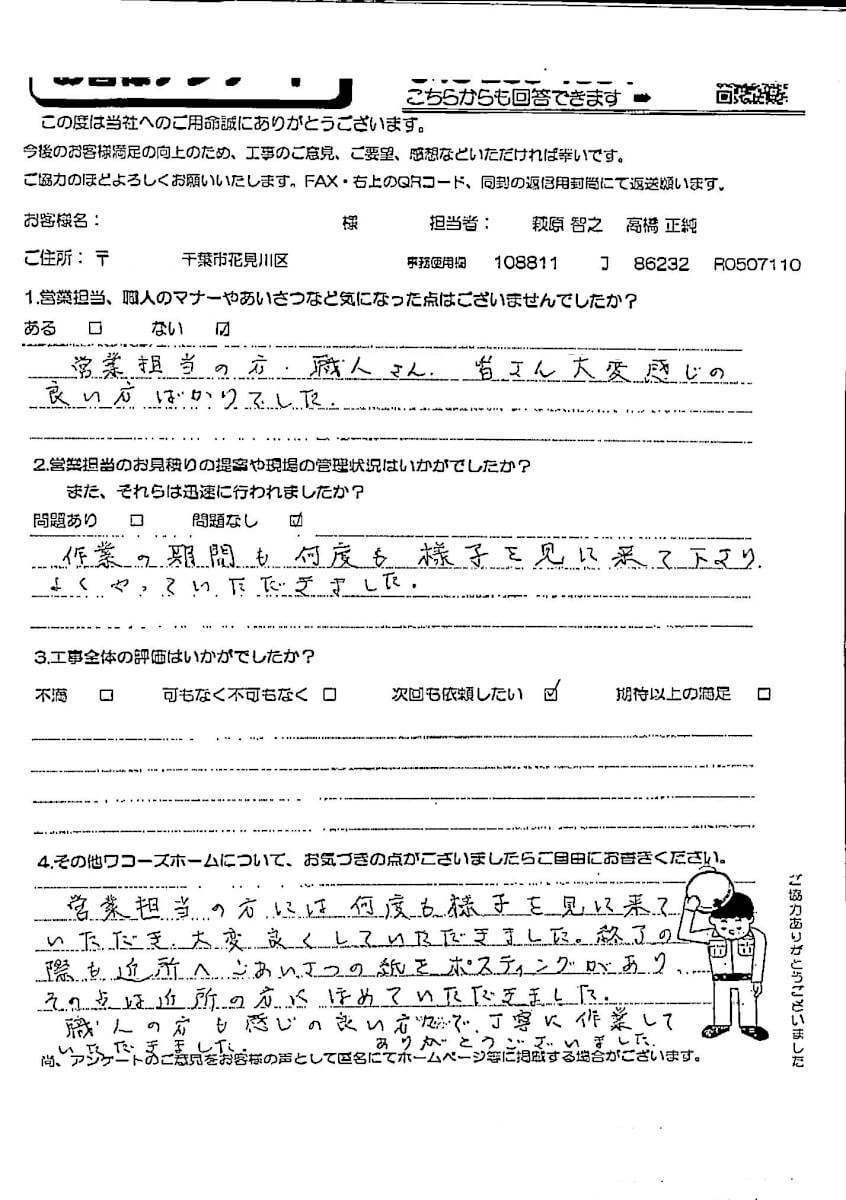 お客様アンケート
こちらからも回答できます ➡
この度は当社へのご用命誠にありがとうございます。
今後のお客様満足の向上のため、工事のご意見、ご要望、感想などいただければ幸いです。
ご協力のほどよろしくお願いいたします。FAX・右上のQRコード、同封の返信用封筒にて返送願います。
お客様名： 様 担当者： 萩原 智之 高橋 正純
ご住所：〒 千葉市花見川区 事務使用欄 108811 J 86232 R0507110
1.営業担当、職人のマナーやあいさつなど気になった点はございませんでしたか？
ある □ ない ☑
営業担当の方・職人さん、皆さん大変感じの
良い方ばかりでした。
2.営業担当のお見積りの提案や現場の管理状況はいかがでしたか？
また、それらは迅速に行われましたか？
問題あり □ 問題なし ☑
作業の期間も何度も様子を見に来て下さり、
よくやっていただきました。
3.工事全体の評価はいかがでしたか？
不満 □ 可もなく不可もなく □ 次回も依頼したい ☑ 期待以上の満足 □
4.その他ワコーズホームについて、お気づきの点がございましたらご自由にお書きください。
営業担当の方には何度も様子を見に来て
いただき、大変良くしていただきました。終了の
際も近所へごあいさつの紙をポスティングがあり、
その点は近所の方にほめていただきました。
職人の方も感じの良い方で、丁寧に作業して
いただきました。 ありがとうございました。
尚、アンケートのご意見をお客様の声として匿名にてホームページ等に掲載する場合がございます。
ご協力ありがとうございました